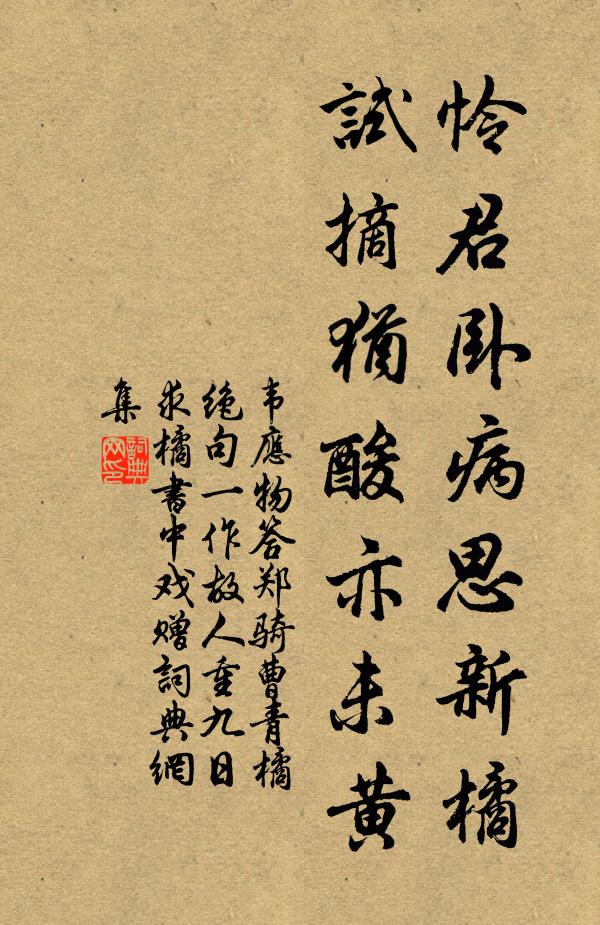 怜君卧病思新橘
試摘猶酸亦未黄
韦應物答郑骑曹青橘
绝句一作故人重九日
求橘書中戏赠詞典網
集
詞典
网印